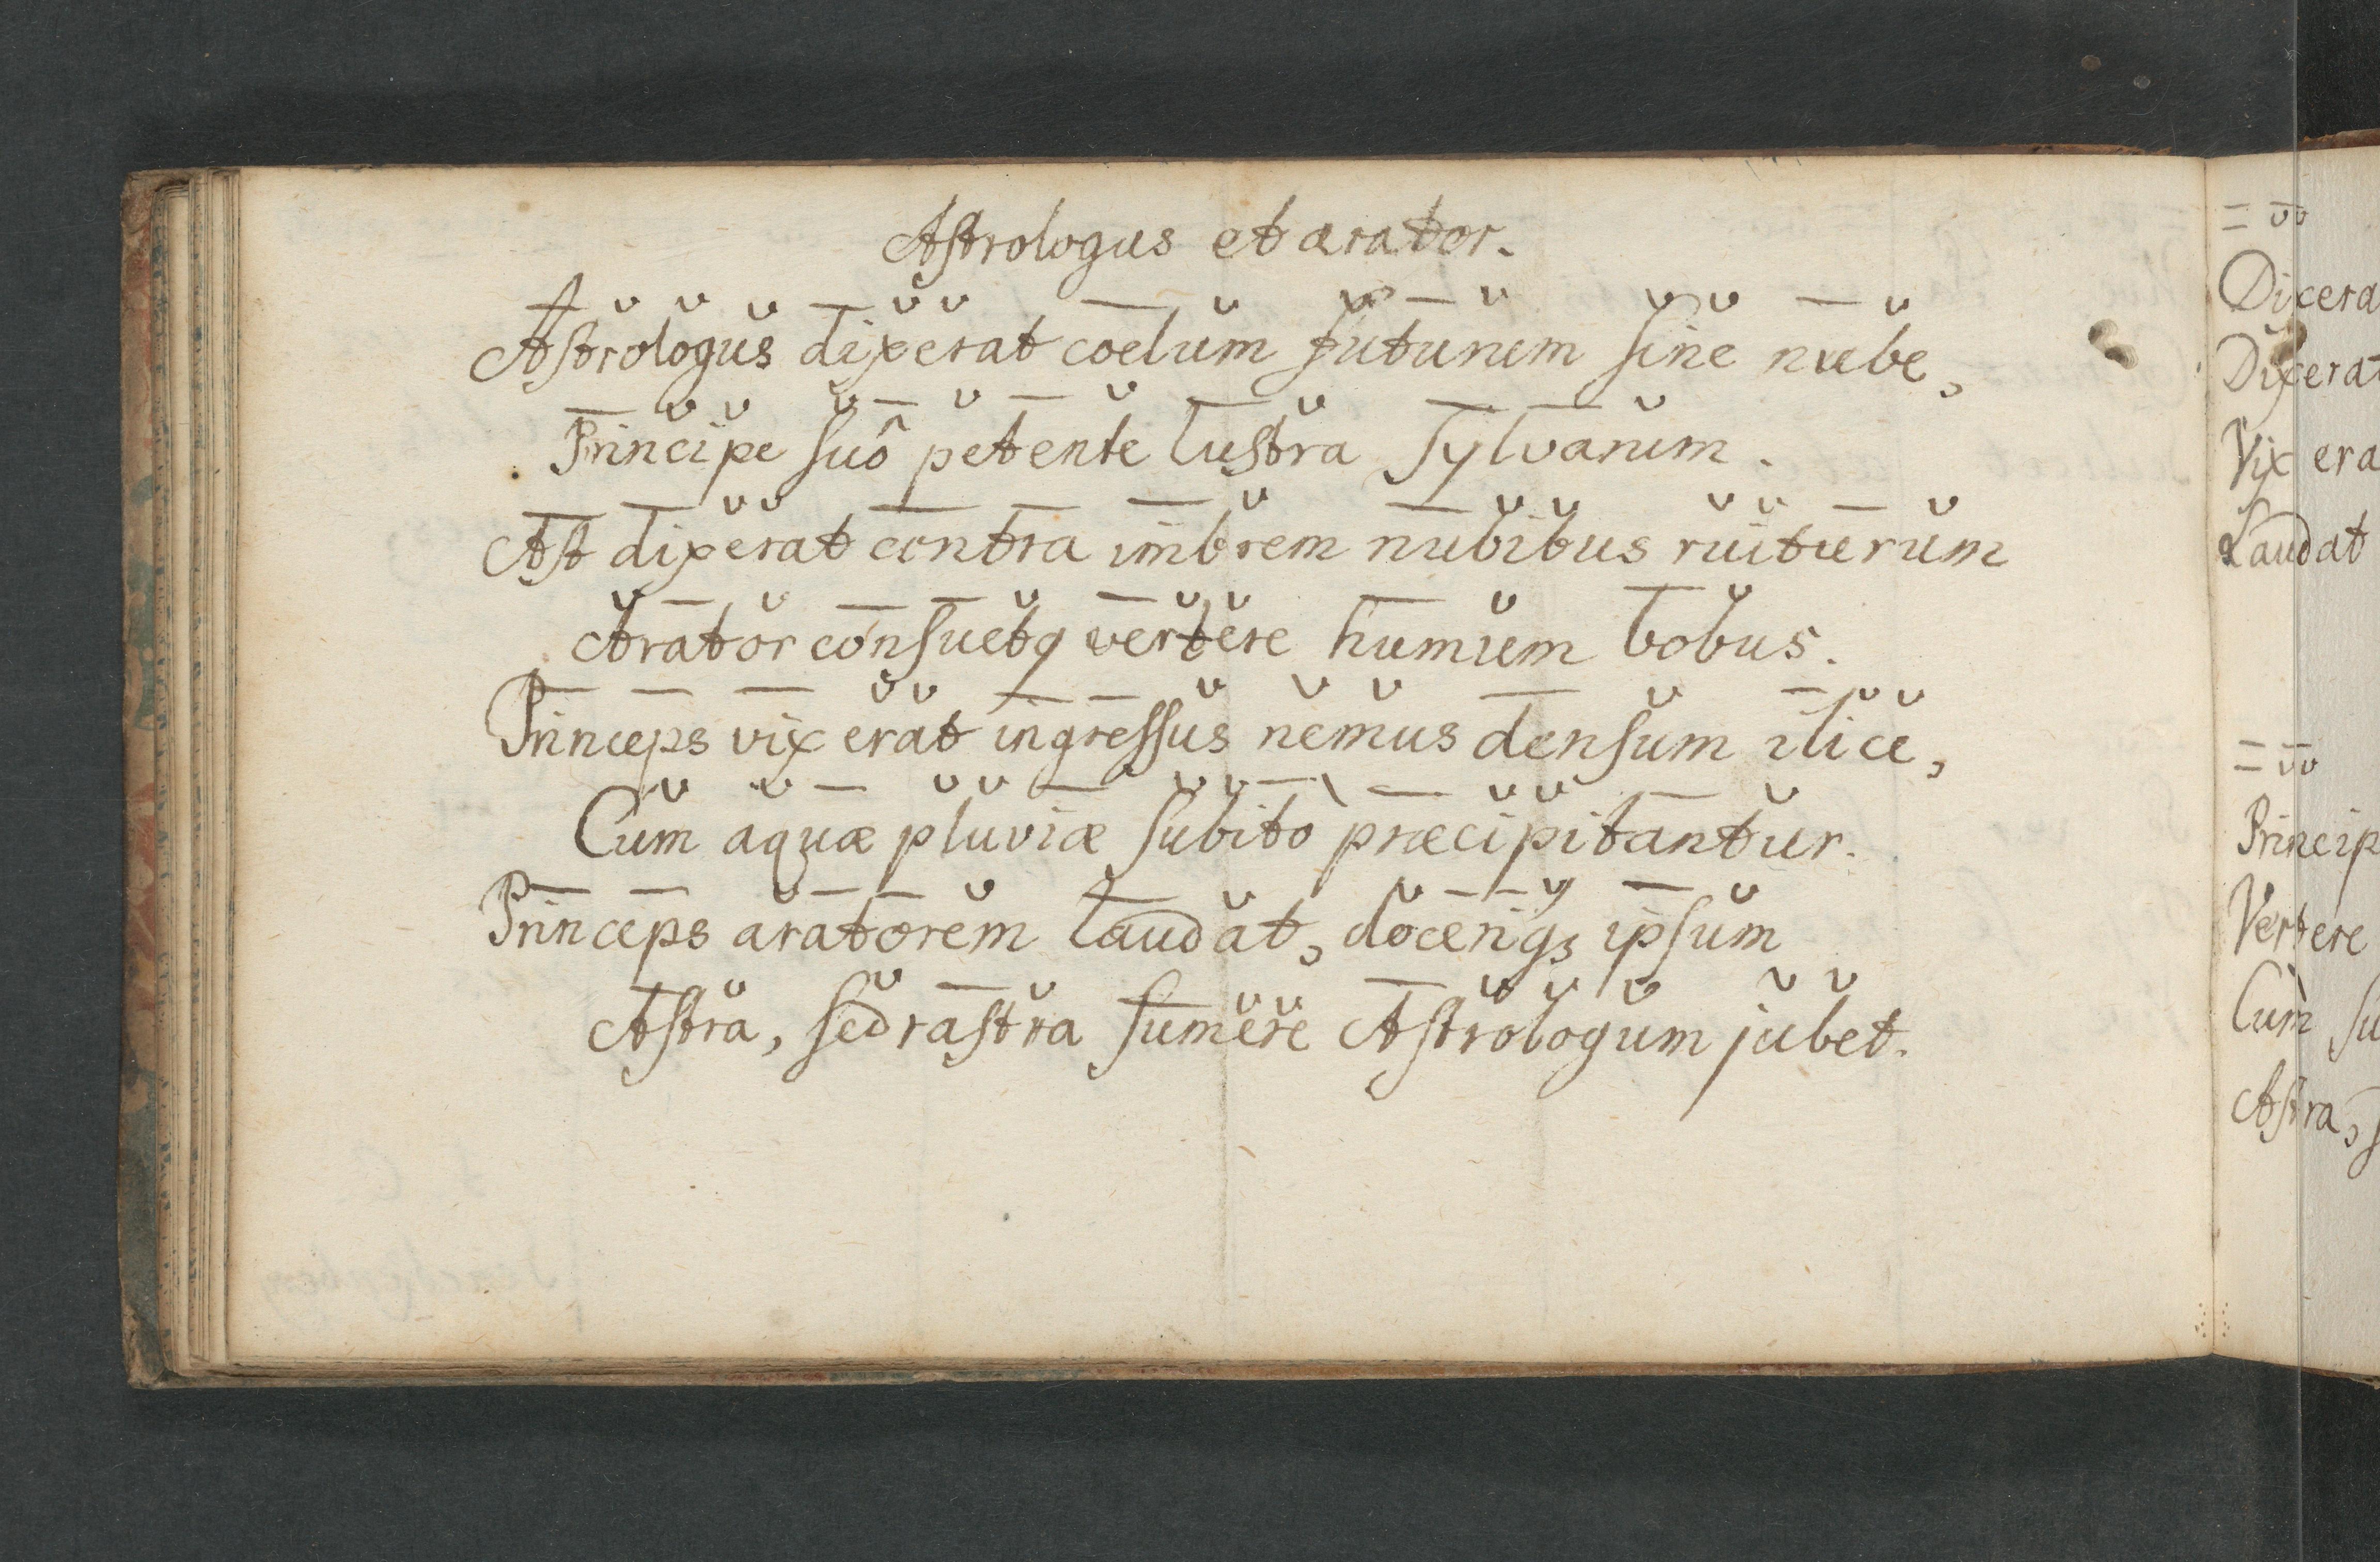 Astrologus et arator.
Astrologus dixerat coelum futurum sine nube,
Principe suô petente lustra sylvarum.
Ast dixerat contra imbrem nubibus ruiturum
Arator consuetq vertere humum bobus.
Princeps vix erat ingressus nemus densum ilice,
Cum aquæ pluviæ subitò præcipitantur.
Princeps aratorem laudat, docenq3 ipsum
Astra, sed rastra sumere Astrologum jubet.
Dixera
Dixerat
Vix era
Laudat
Princip
Vertere
Cum su
Astra, s